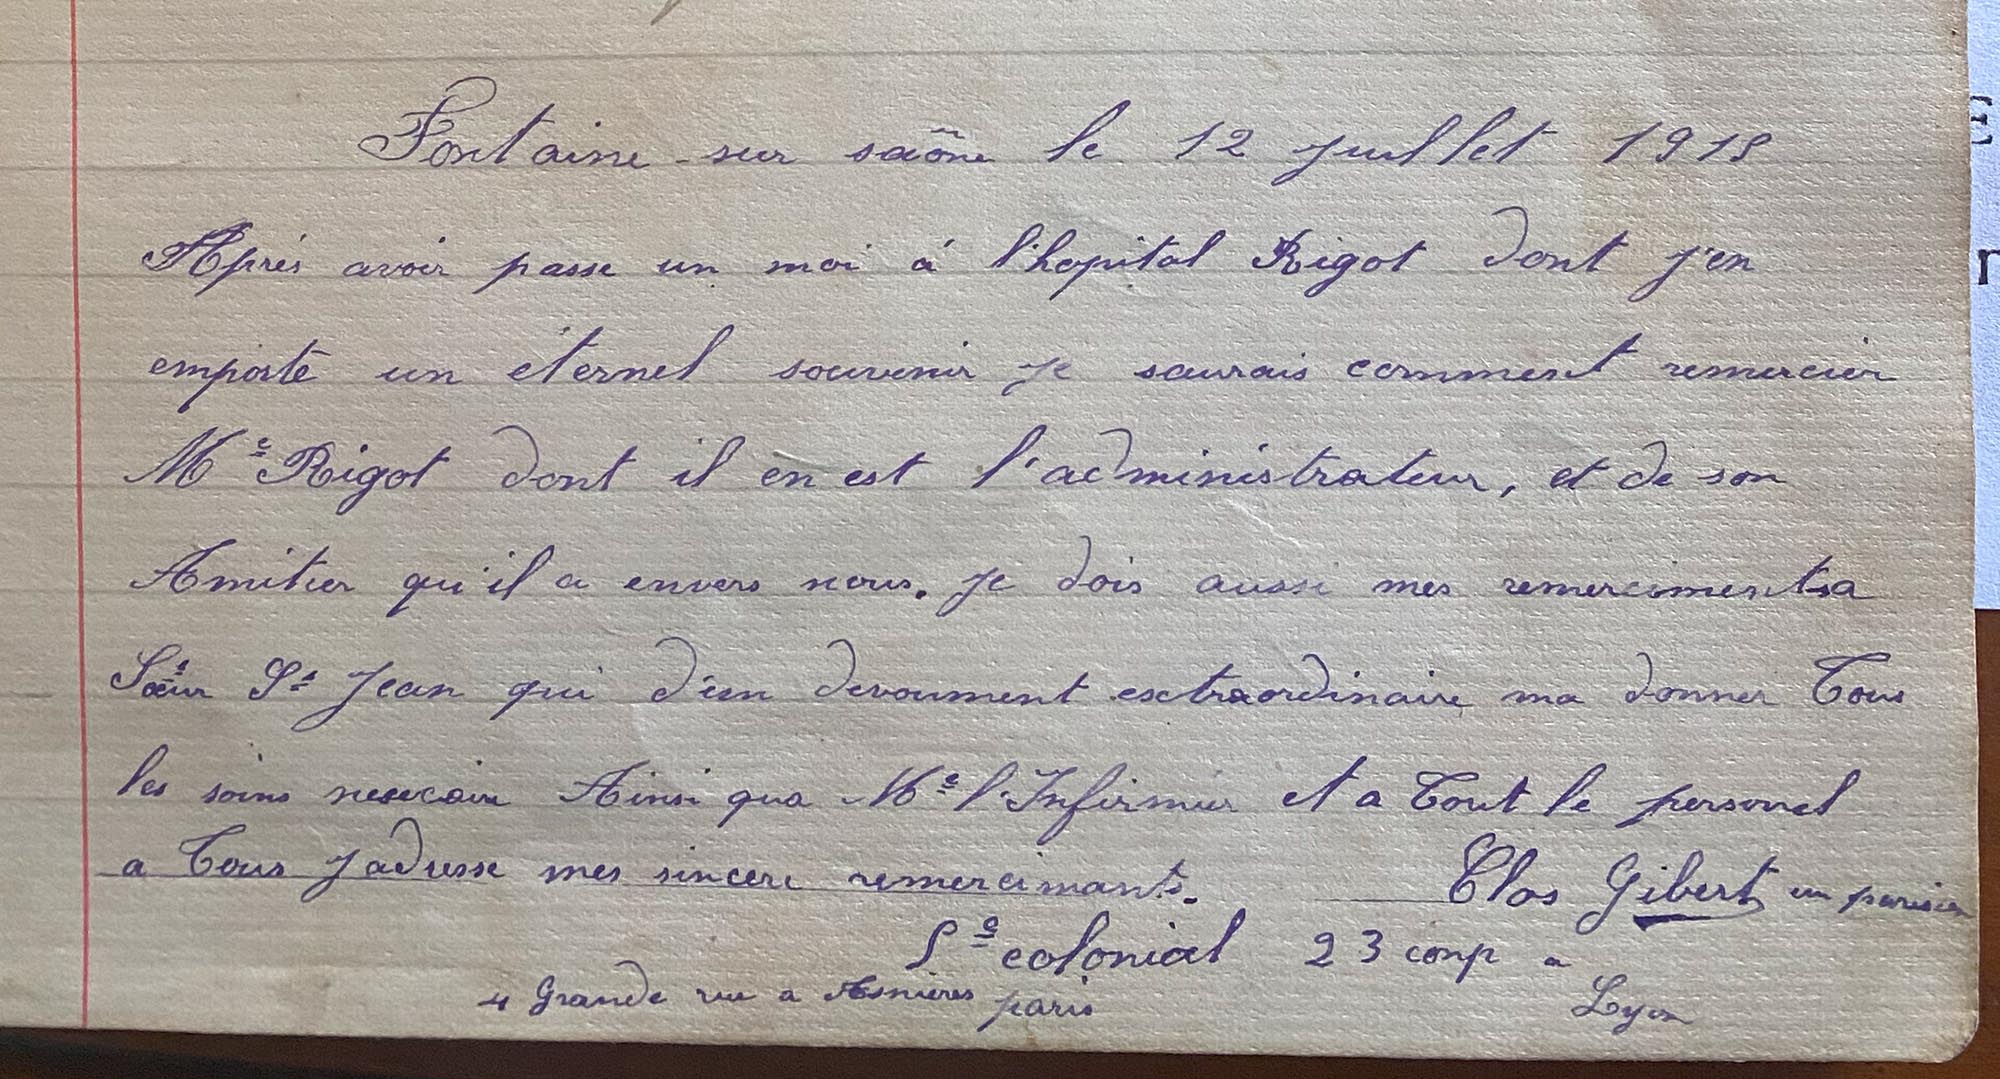 Fontaine sur saône le 12 juillet 1915
Aprés avoir passe un moi á l'hopital Rigot dont j'en
emporte un éternel souvenir je saurais comment remercier
Mr Rigot dont il en est l'administrateur, et de son
Amitier qu'il a envers nous. je dois aussi mes remerciments a
Sœur St Jean qui d'un devoument extraordinaire ma donner Tous
les soins Ainsi qua Mr l'Infirmier et a Tout le personel
a Tous j adresse mes sincere remercimants.
Clos Gibert un parisien
5e colonial 23 comp a
Lyon
4 Grande rue a Asnières paris
E